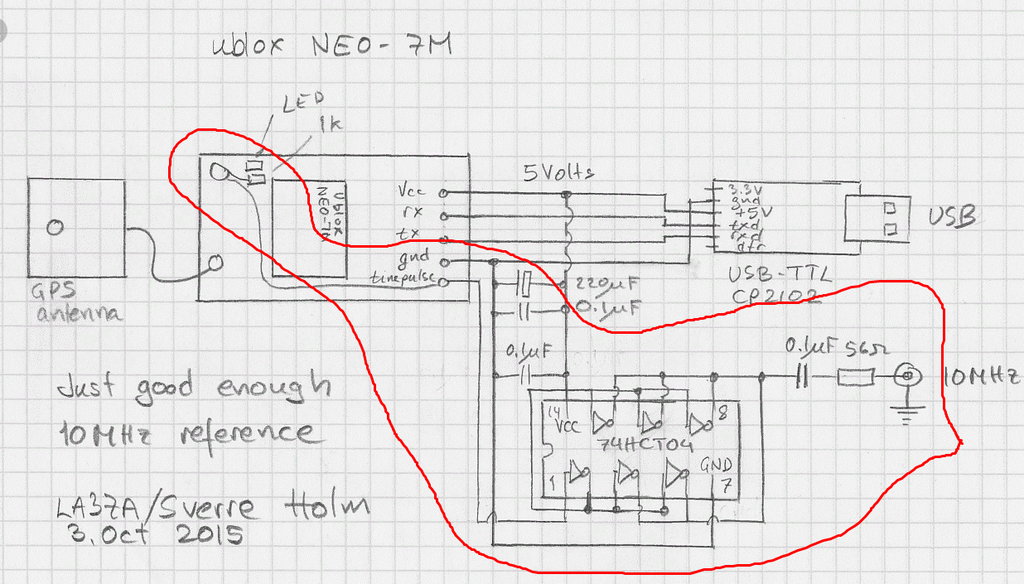 ublox NEO-7M
LED
1k
5Volts
Vcc
rx
tx
gnd
timepulse
Ublox
NEO-7M
3.3V
gnd
+5V
txd
rxd
dtr
USB
USB-TTL
CP2102
GPS
antenna
220µF
0.1µF
0.1µF
0.1µF 56Ω
10MHz
14
VCC
8
74HCT04
1
GND
7
Just good enough
10MHz reference
LA3ZA/Sverre Holm
3. Oct 2015